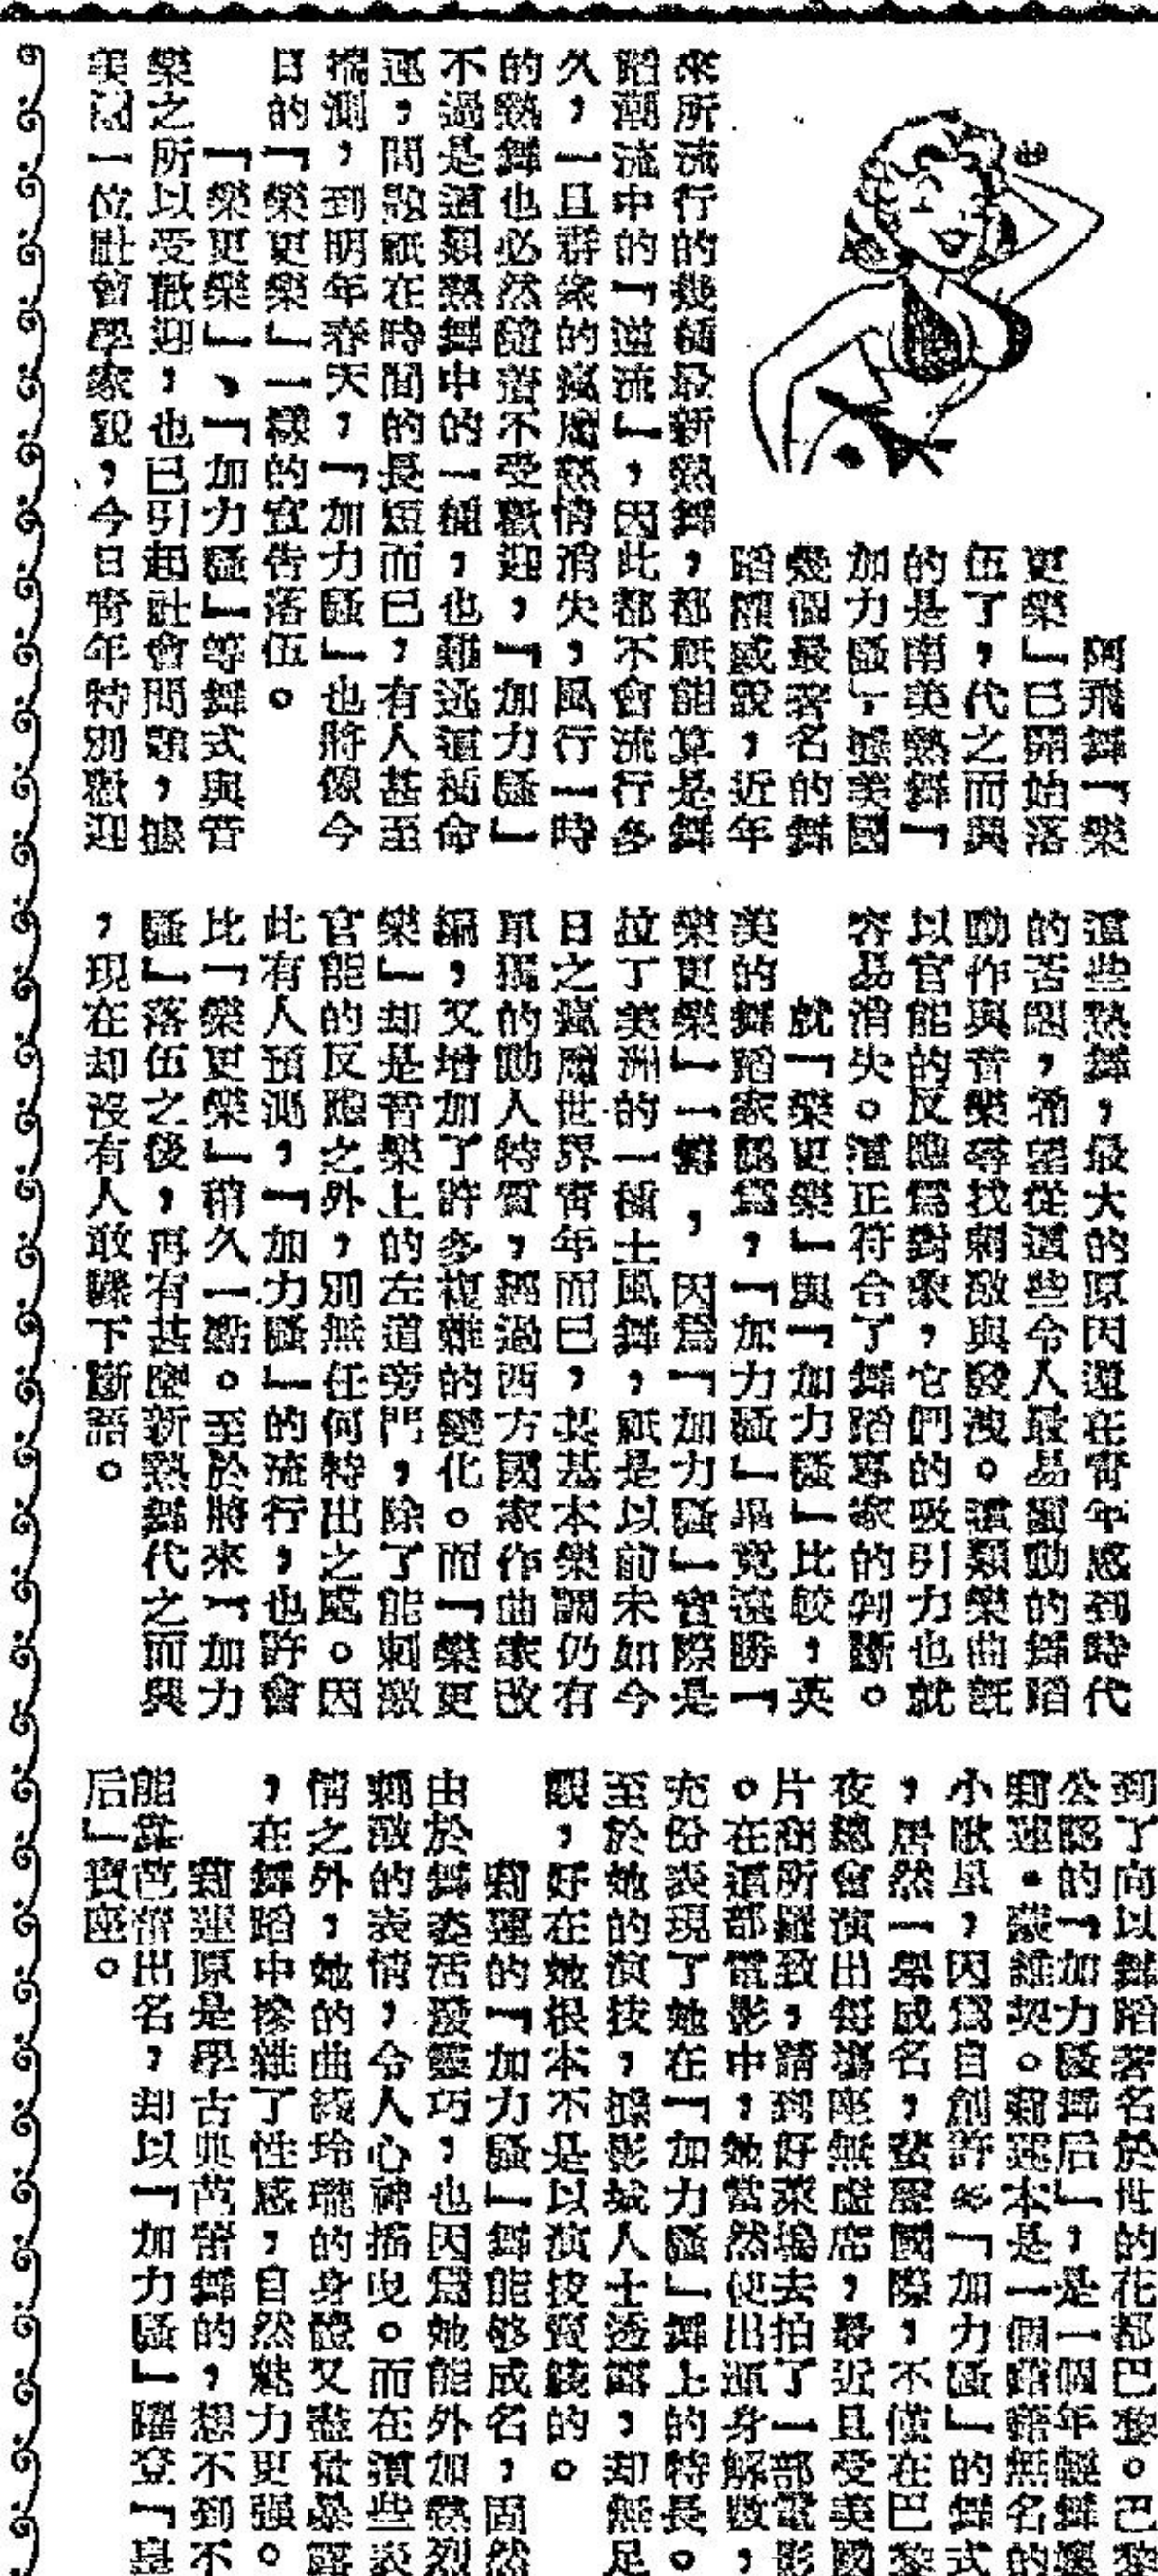 阿飛舞「樂
更樂」已開始落
伍了，代之而興
的是南美熱舞「
加力騷」，據美國
幾個最著名的舞
蹈權威說，近年
來所流行的幾種最新熱舞，都祇能算是舞
蹈潮流中的「逆流」，因此都不會流行多
久，一旦群衆的瘋魔熱情消失，風行一時
的熱舞也必然隨着不受歡迎，「加力騷」
不過是這類熱舞中的一種，也難逃這種命
運，問題祇在時間的長短而已，有人甚至
揣測，到明年春天，「加力騷」也將像今
日的「樂更樂」一樣的宣告落伍。
「樂更樂」、「加力騷」等舞式與音
樂之所以受歡迎，也已引起社會問題，據
美國一位社會學家說，今日青年特別歡迎
這些熱舞，最大的原因還在青年感到時代
的苦悶，希望從這些令人最易激動的舞蹈
動作與音樂尋找刺激與發洩。這類樂曲既
以官能的反應爲對象，它們的吸引力也就
容易消失。這正符合了舞蹈專家的判斷。
就「樂更樂」與「加力騷」比較，英
美的舞蹈家認爲，「加力騷」畢竟遠勝「
樂更樂」一籌，因爲「加力騷」實際是
拉丁美洲的一種土風舞，祇是以前未如今
日之瘋魔世界青年而已，其基本樂調仍有
單獨的動人特質，經過西方國家作曲家改
編，又增加了許多複雜的變化。而「樂更
樂」却是音樂上的左道旁門，除了能刺激
官能的反應之外，別無任何特出之處。因
此有人預測，「加力騷」的流行，也許會
比「樂更樂」稍久一點。至於將來「加力
騷」落伍之後，再有甚麼新熱舞代之而興
，現在却沒有人敢驟下斷語。
到了向以舞蹈著名於世的花都巴黎。巴黎
公認的「加力騷舞后」，是一個年輕舞孃
莉蓮・蒙維契。莉蓮本是一個藉藉無名的
小歌星，因爲自創許多「加力騷」的舞式
，居然一舉成名，蜚聲國際，不僅在巴黎
夜總會演出每場座無虛席，最近且受美國
片商所羅致，請到好萊塢去拍了一部電影
。在這部電影中，她當然使出渾身解數，
充份表現了她在「加力騷」舞上的特長。
至於她的演技，據影城人士透露，却無足
觀，好在她根本不是以演技賣錢的。
莉蓮的「加力騷」舞能够成名，固然
由於舞姿活潑靈巧，也因爲她能外加熱烈
刺激的表情，令人心神搖曳。而在這些表
情之外，她的曲綫玲瓏的身體又盡量暴露
，在舞蹈中摻雜了性感，自然魅力更强。
莉蓮原是學古典芭蕾舞的，想不到不
能靠芭蕾出名，却以「加力騷」躍登「皇
后」寶座。